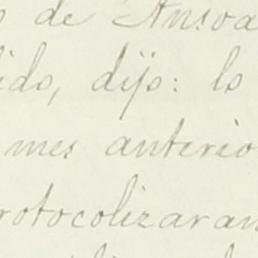 de Ansoa
ido, dijo: lo
mes anterio
rotocolizaran